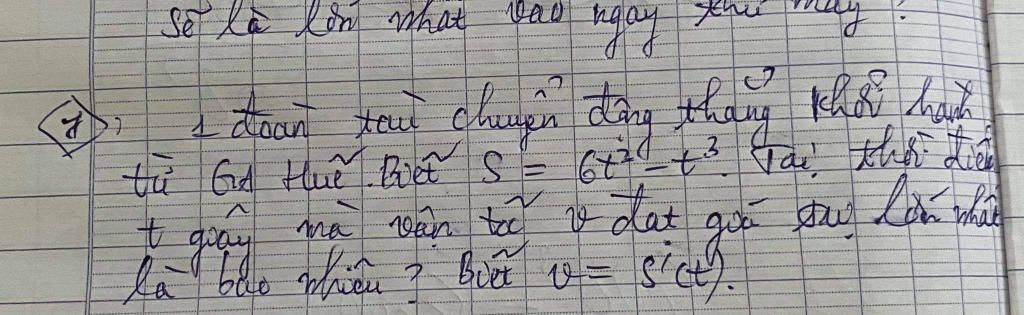 sẽ là lớn nhất vào ngày thứ mấy?
7): 1 đoàn tàu chuyển động thẳng khởi hành
từ Ga Huế. Biết S = 6t² - t³. Tại thời điểm
t giây mà vận tốc v đạt giá trị lớn nhất
là bao nhiêu? Biết v = S'(t).